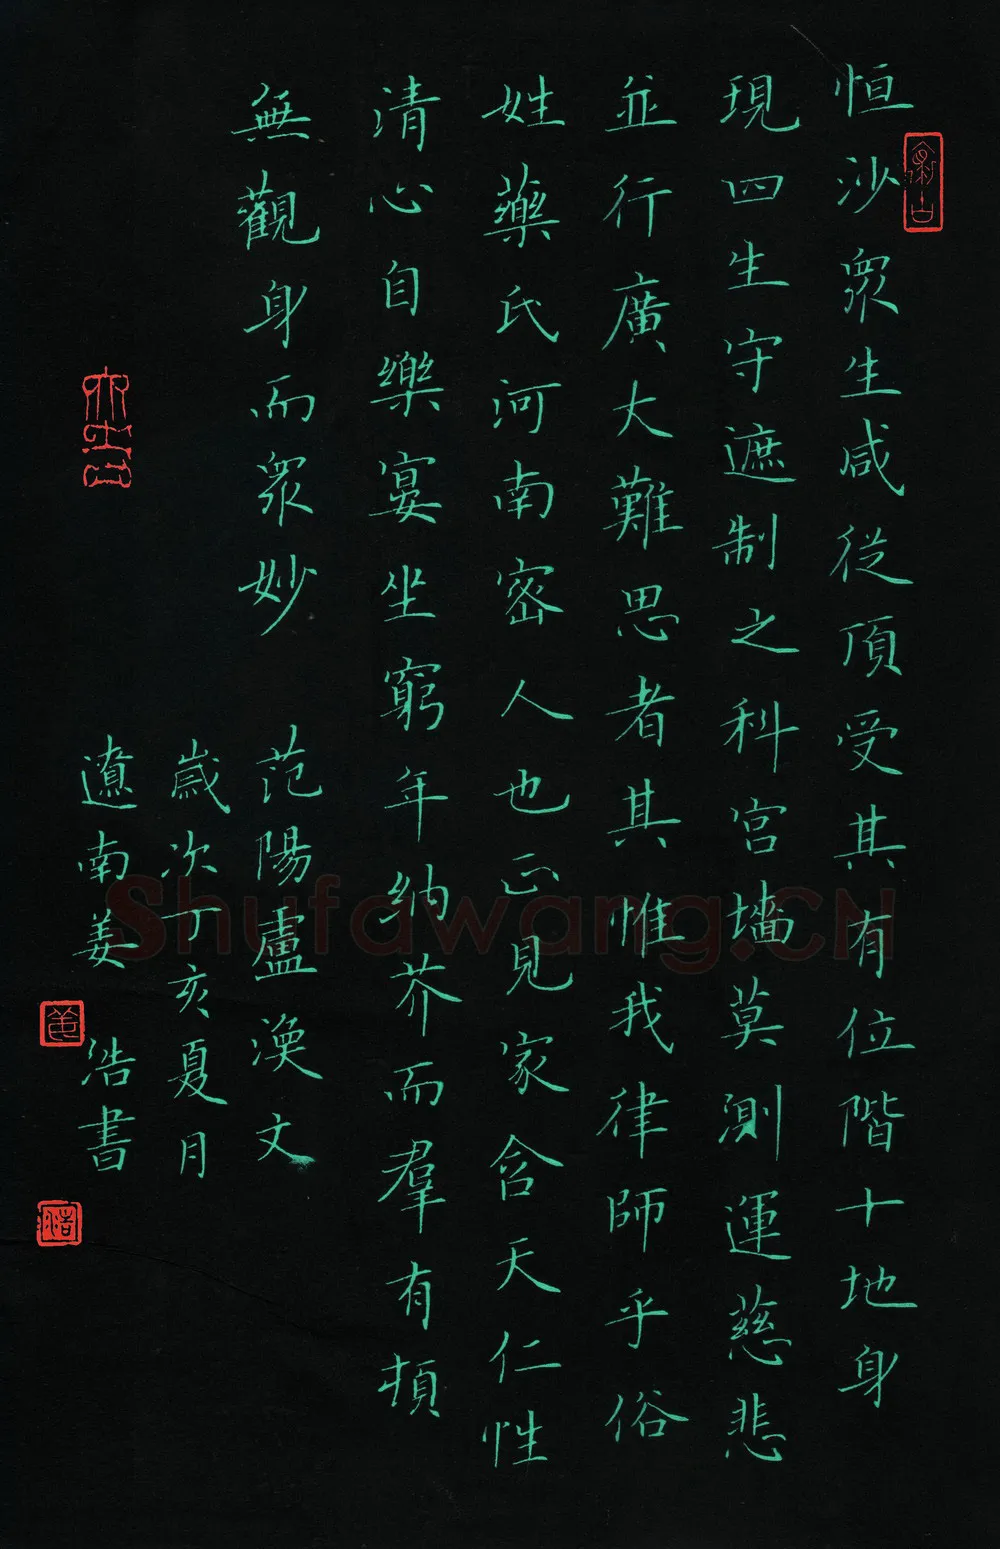 恒沙眾生咸從頂受其有位階十地身
現四生守遮制之科宮墻莫測運慈悲
並行廣大難思者其惟我律師乎俗
姓藥氏河南密人也正見家含天仁性
清心自樂宴坐窮年納芥而羣有頓
無觀身而眾妙
范陽盧渙文
歲次丁亥夏月
遼南姜浩書
Shufawang.CN